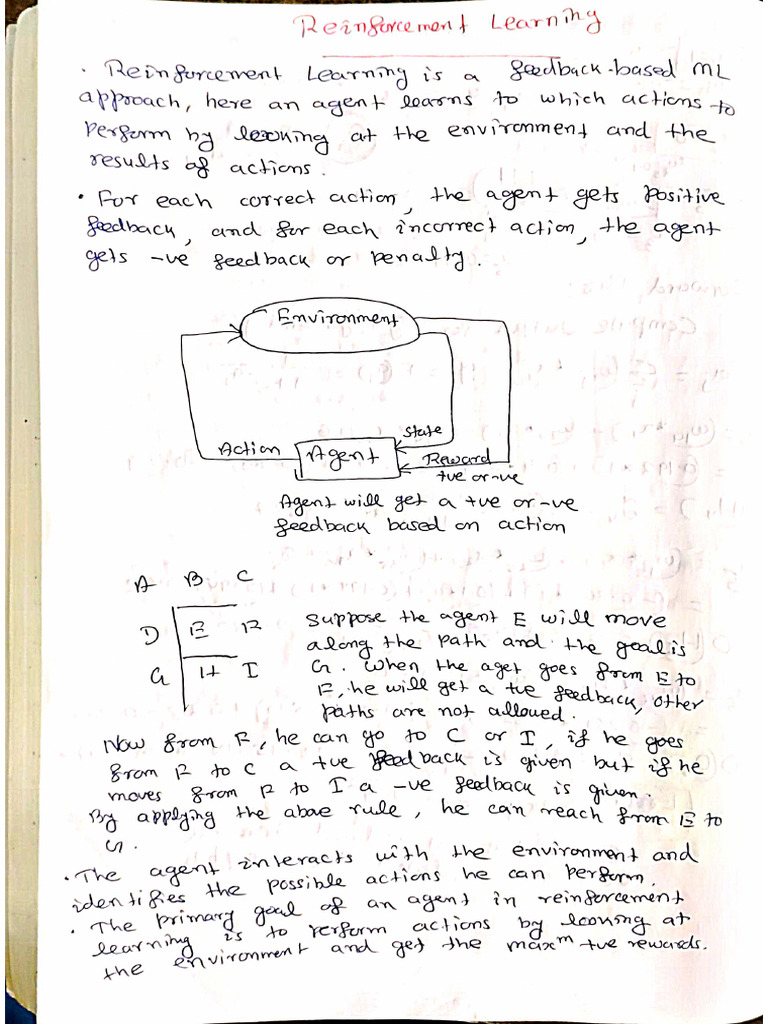 Reinforcement Learning
• Reinforcement Learning is a feedback-based ML
approach, here an agent learns to which actions to
perform by looking at the environment and the
results of actions.
• For each correct action, the agent gets Positive
feedback, and for each incorrect action, the agent
gets -ve feedback or penalty.
Environment
State
Action
Agent
Reward
+ve or -ve
Agent will get a +ve or -ve
feedback based on action
A B C
D E F
G H I
Suppose the agent E will move
along the path and the goal is
G. When the aget goes from E to
F, he will get a +ve feedback, other
paths are not allowed.
Now from F, he can go to C or I, if he goes
from F to C a +ve feedback is given but if he
moves from F to I a -ve feedback is given.
By applying the abae rule, he can reach from E to
G.
• The agent interacts with the environment and
identifies the possible actions he can perform.
• The primary goal of an agent in reinforcement
learning is to perform actions by looking at
the environment and get the maxᵐ +ve rewards.